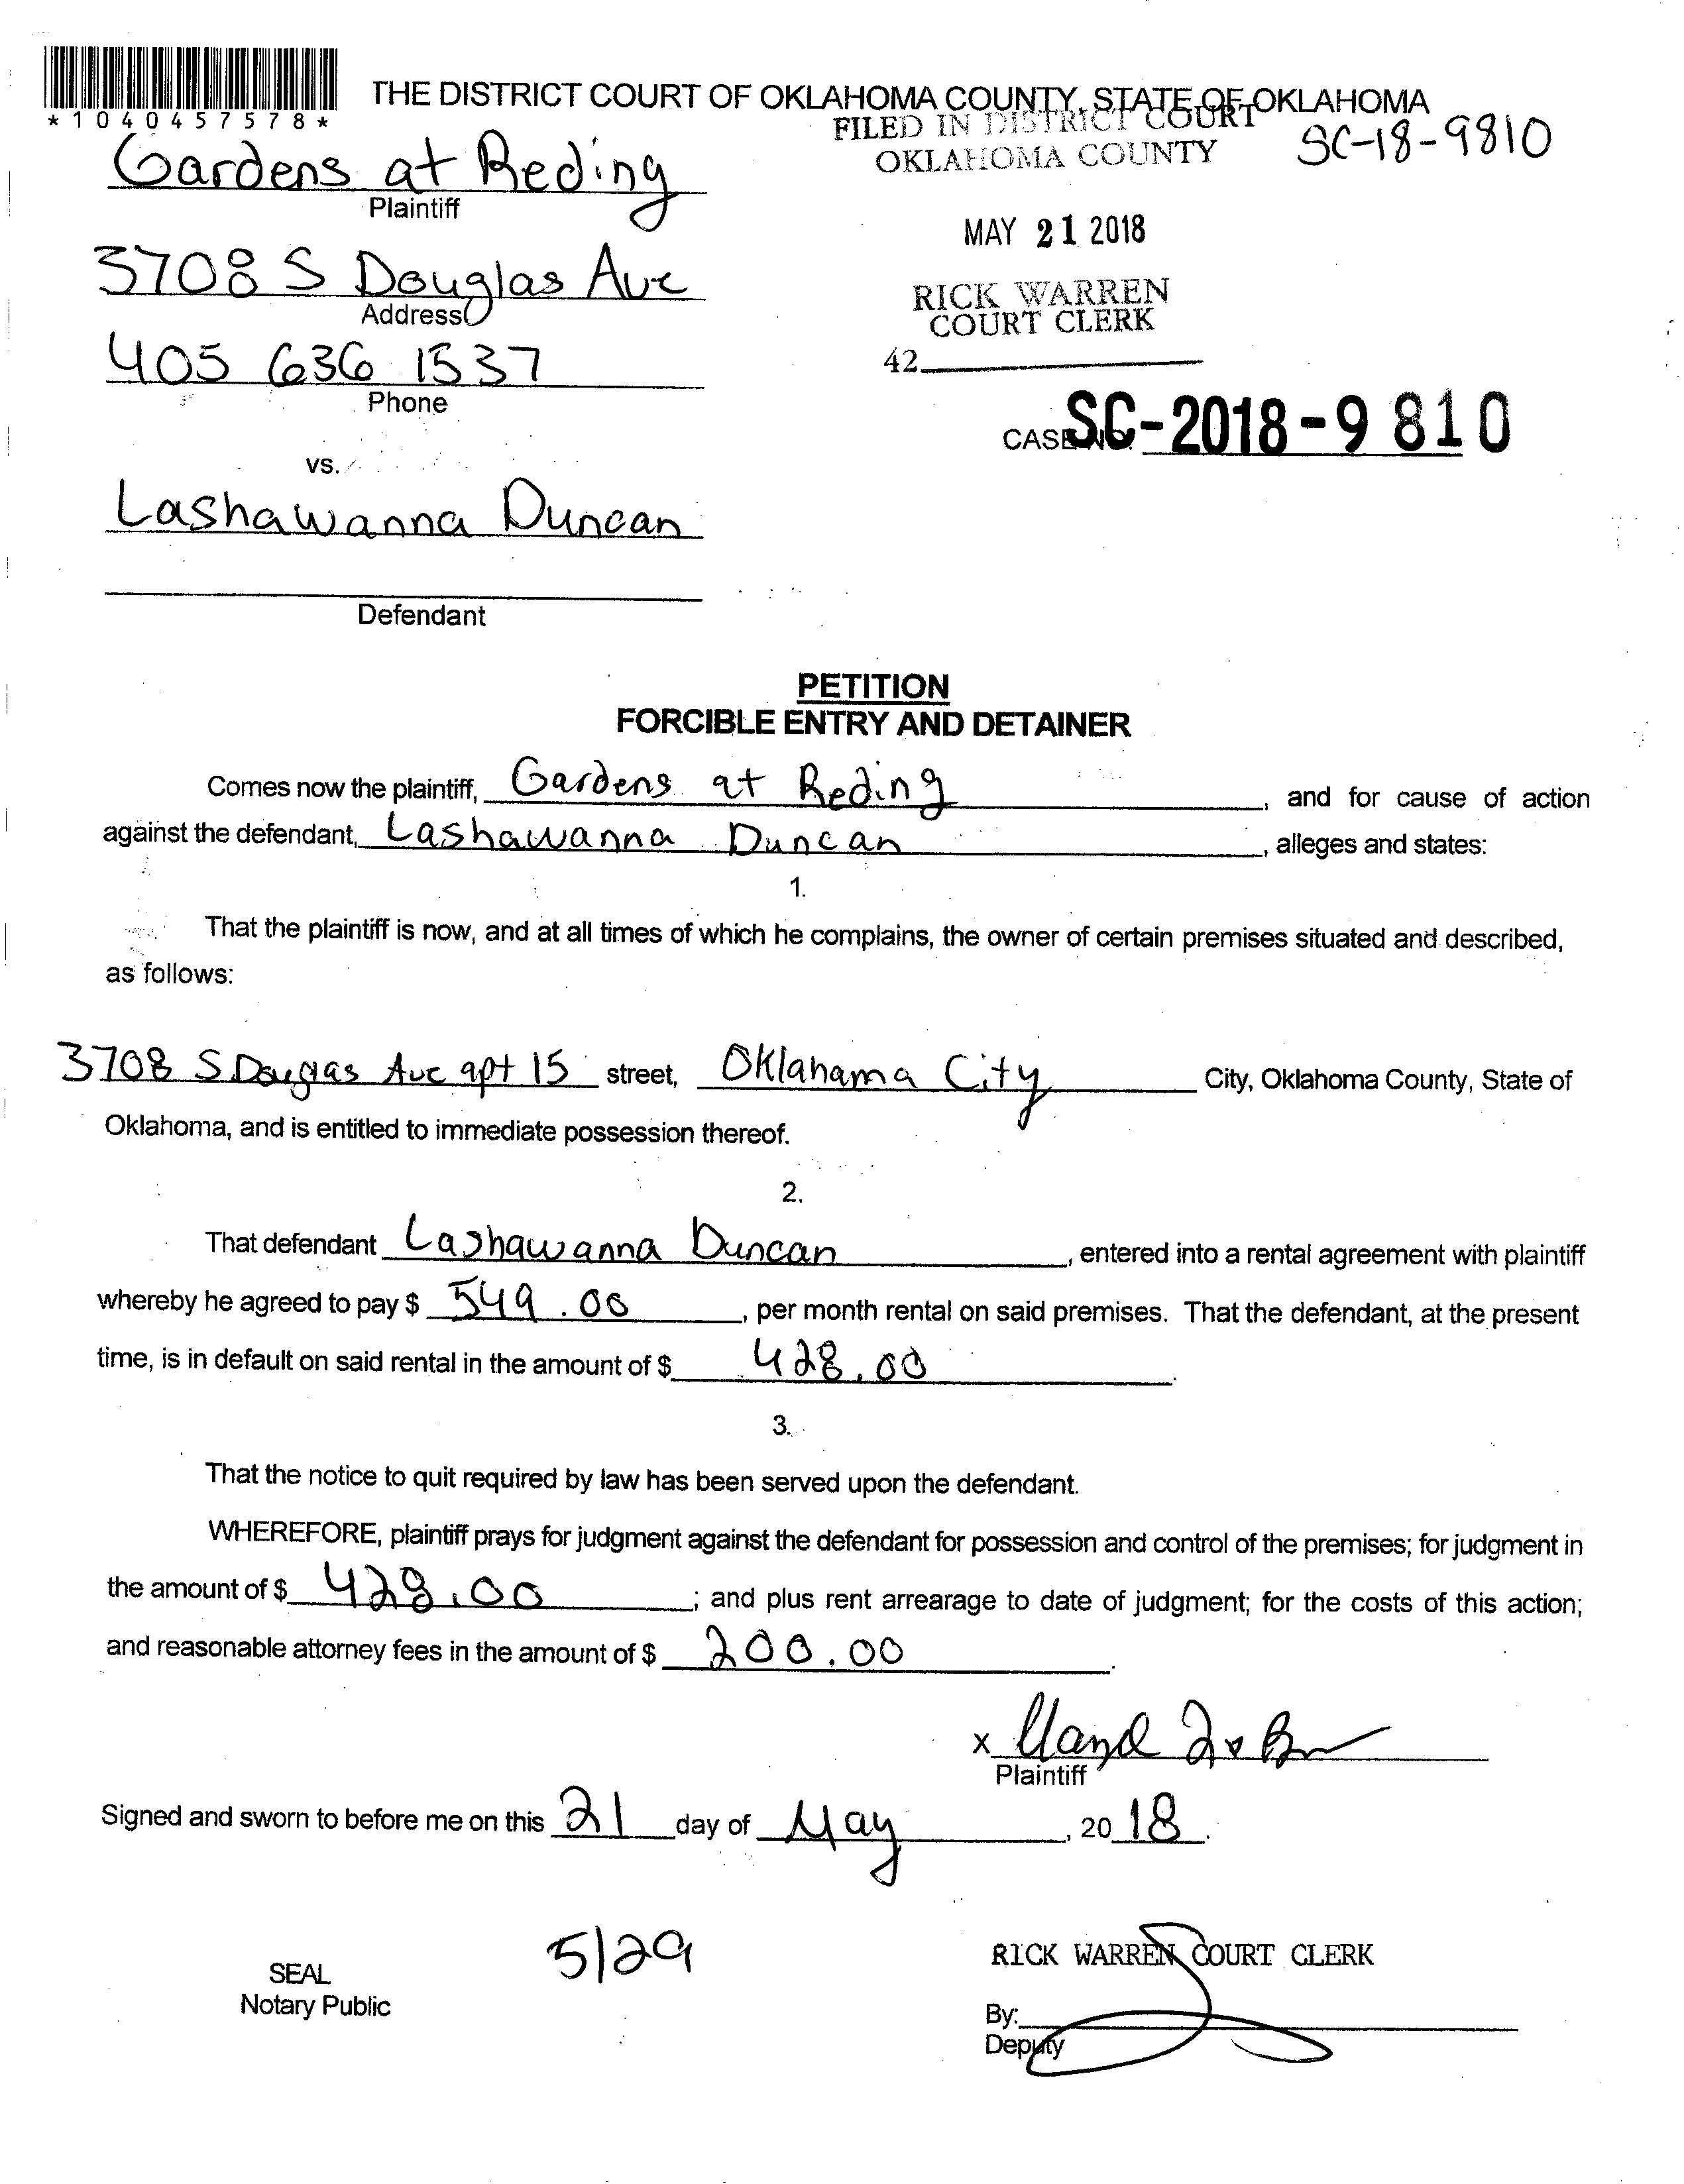 THE DISTRICT COURT OF OKLAHOMA COUNTY, STATE OF OKLAHOMA
*1040457578*
FILED IN DISTRICT COURT
OKLAHOMA COUNTY
SC-18-9810
Gardens at Reding
Plaintiff
MAY 21 2018
3708 S Douglas Ave
Address
RICK WARREN
COURT CLERK
405 636 1537
Phone
42
CASE NO. SC-2018-9810
vs.
Lashawanna Duncan
Defendant
PETITION
FORCIBLE ENTRY AND DETAINER
Comes now the plaintiff, Gardens at Reding, and for cause of action
against the defendant, Lashawanna Duncan, alleges and states:
1.
That the plaintiff is now, and at all times of which he complains, the owner of certain premises situated and described,
as follows:
3708 S Douglas Ave apt 15 street, Oklahama City City, Oklahoma County, State of
Oklahoma, and is entitled to immediate possession thereof.
2.
That defendant Lashawanna Duncan, entered into a rental agreement with plaintiff
whereby he agreed to pay $ 549.00, per month rental on said premises. That the defendant, at the present
time, is in default on said rental in the amount of $ 428.00.
3.
That the notice to quit required by law has been served upon the defendant.
WHEREFORE, plaintiff prays for judgment against the defendant for possession and control of the premises; for judgment in
the amount of $ 428.00; and plus rent arrearage to date of judgment; for the costs of this action;
and reasonable attorney fees in the amount of $ 200.00.
x
Plaintiff
Signed and sworn to before me on this 21 day of May, 2018.
5/29
SEAL
Notary Public
RICK WARREN COURT CLERK
By:
Deputy